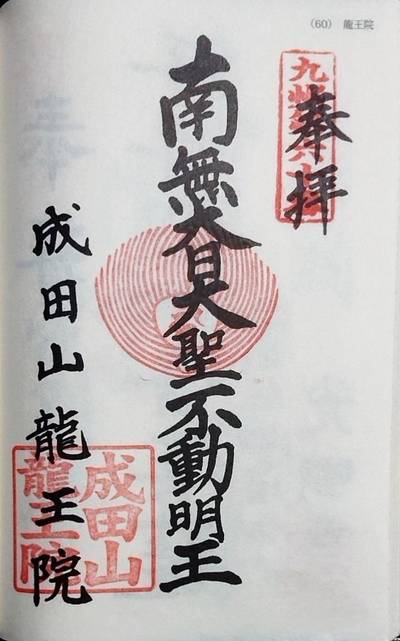 (60) 龍王院
奉拝
九州
南無大日大聖不動明王
成田山龍王院
成田山
龍王院